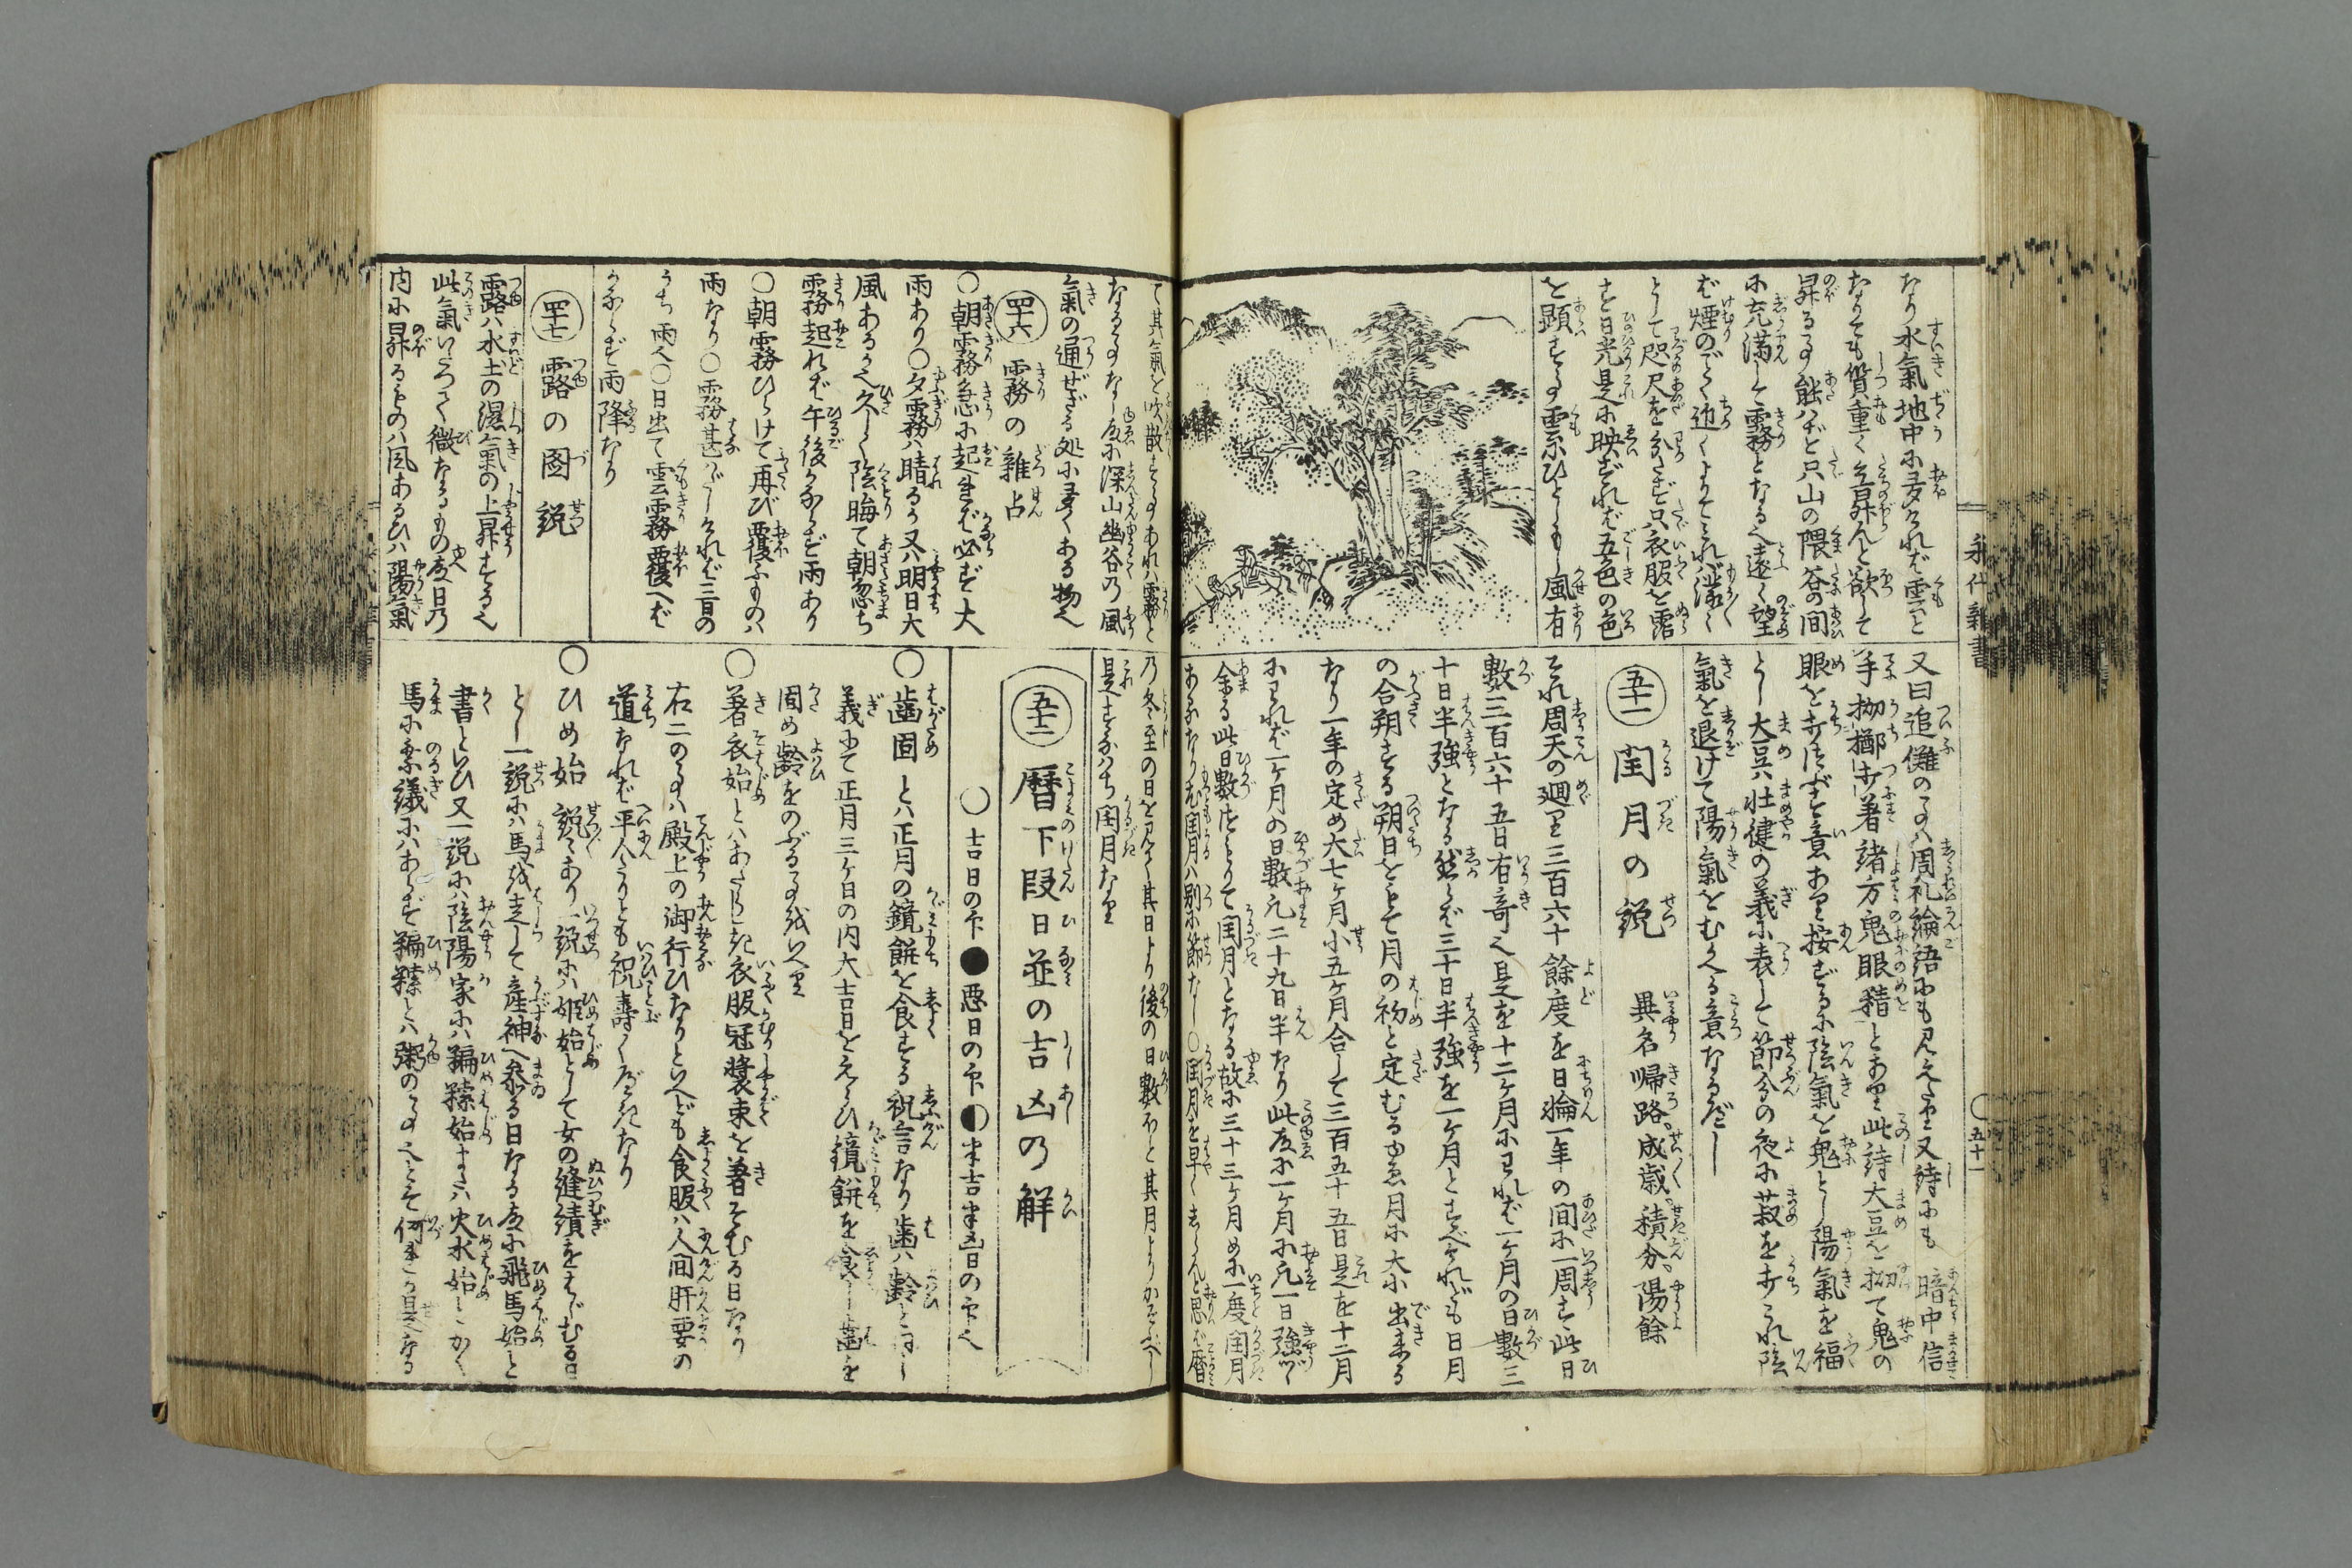 永代雜書
○五十一
なり水氣地中に多ければ雲と
なりても質重く立昇んと欲して
昇る事能はず只山の隈谷の間
に充満して霧となる也遠く望
ば煙のごとく近くよりてこれば濛々
として咫尺を分たず只衣服を霑
す日光是に映ずれば五色の色
を顕する事雲にひとしもし風有
て其氣を吹散す事あれば霧と
なる事なし故に深山幽谷の風
氣の通ぜざる処に多くある物也
四十六 霧の雜占
○朝霧急に起きば必ず大
雨あり○夕霧は晴るゝ又は明日大
風あるべく久しく陰晦て朝忽ち
霧起れば午後かならず雨あり
○朝霧ひらけて再び覆ふものは
雨なり○霧甚だしければ三日の
うち雨也○日出て雲霧覆へば
かならず雨降なり
四十七 露の圖説
露は水土の濕氣の上昇する也
此氣いたつて微なるもの故日乃
内に昇るものは風あるひは陽氣
又曰追儺の事は周礼論語にも見えたり又詩にも 暗中信
手抛擲去 著諸方鬼眼積とあり此詩大豆を抛て鬼の
眼を
とし大豆は壮健の義に表して節分の夜に菽を打これ陰
氣を退けて陽氣をむかへる意なるべし
五十一 閏月の説 異名 帰路、成歳、積分、陽餘
それ周天の廻り三百六十餘度を日輪一年の間に一周す此日
數三百六十五日有奇也是を十二ケ月にわれば一ケ月の日數三
十日半強となる然らば三十日半強を一ケ月とすべけれども日月
の合朔する朔日をもて月の初と定むるゆゑ月に大小出来る
なり一年の定め大七ケ月小五ケ月合して三百五十五日是を十二月
にわれば一ケ月の日數凡二十九日半なり此故に一ケ月に凡一日強づゝ
余る此日數つもりて閏月となる故に三十三ケ月めに一度閏月
あるなり尤閏月は別に節なし○閏月を早くしらんと思はば暦
乃冬至の日を見て其日より後の日數ほと其月よりかぞふべし
是すなはち閏月なり
五十二 暦下段日並の吉凶乃解
○吉日の印●悪日の印◐半吉半凶日の印也
○歯固 とは正月の鏡餅を食する祝言なり歯は齢と同じ
義にて正月三ケ日の内大吉日をえらひ鏡餅を食し歯を
固め齢をのぶる事
○著衣始とはあたらしき衣服冠裝束を著そむる日なり
右二の事は殿上の御行ひなりといへども食服は人間肝要の
道なれば平人たりとも祝壽くべきなり
○ひめ始 説々あり一説には姫始として女の縫績をはじむる日
とし一説には馬に
産神へ參る日なる故に飛馬始と
書といひ又一説には陰陽家には糄𥻨始または火水始とかく
馬に乗議にはあらず糄𥻨とは粥の事也とそ何れか是なる